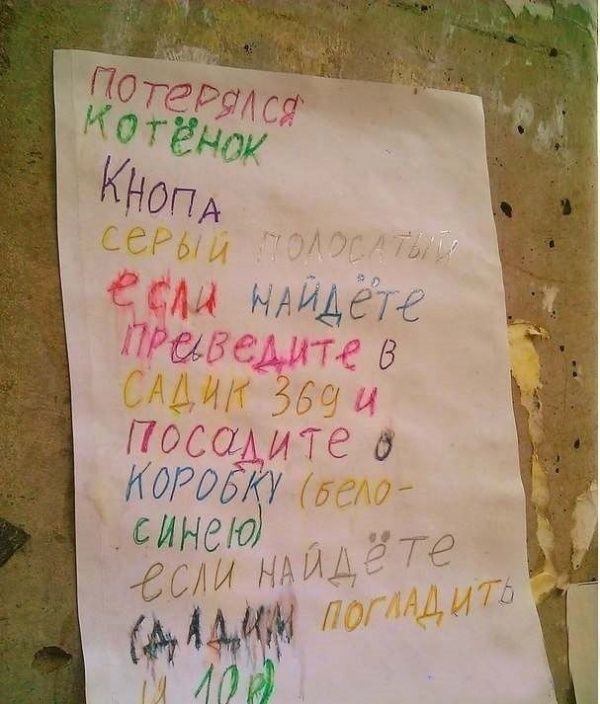 ПОТЕРЯЛСЯ
КОТЁНОК
КНОПА
СЕРЫЙ ПОЛОСАТЫЙ
если НАЙДЁТЕ
ПРеВеДИТе В
САДИК 369 и
ПОСАДИТе В
КОРОБКУ (бело-
синею)
если НАЙДЁТЕ
ДАДИМ ПОГЛАДИТЬ
И 10р